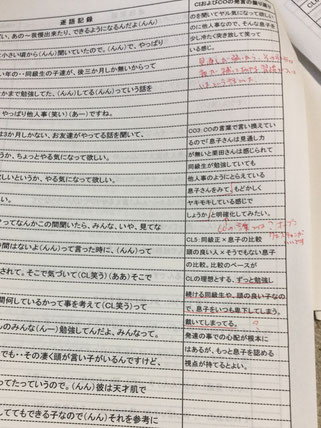 逐語記録
CLおよびCOの発言の振り返り
い、あの一言提出来たり、できるようになるんだよ(んん)
小さい頃から)聞いていたので。(んん)で、やっぱり
い年の‥同級生の子達が、後三か月しか無いからって
かまで勉強してた、(んん)してる(んん)っていう話を
やっぱり他人事(笑い)(あー)ですね。
三か月しかない、お友達がやってる話を聞いて、
うか、ちょっとやる気になって欲しい。
しいというか、やる気になって欲しい。
ってなんかこの間聞いたら、みんな、いや、見てな
間はないよ(んん)って言った時に、(んん)って
されて。そこで気づいて(CL笑う)(ああ)そこで
間何しているかって事を考えて(CL笑う)って
のみんな(んー)勉強してんだよ、みんなって。
でも‥その凄く頭が言い子がいるんですけど、
てたっていうので。(んん)彼は天才肌で
してもできる子なので(んん)それを参考に
のを聞いてヤル気になって欲しい
のに他人事なので、そんな息子を
少し冷たく突き放して笑って
いる感じ。
CO3:COの言葉で言い換えてい
るので「息子さんは見通し力
が無いと栗田さんは感じられて
同級生が勉強していても
他人事のようにとらえている
息子さんをみて、もどかしく
ヤキモキしている感じで
しょうか」と明確化してみたい。
CL5:同級正×息子の比較
頭の良い人×そうでもない息子
の比較。比較のベースが
CLの理想とする、ずっと勉強し
続ける同級生や、頭の良い子なの
で、息子をいつも卑下してしまう。
裁いてしまってる。
発達の事での心配が根本に
はあるが、もっと息子を認める
視点が持てるとよい。